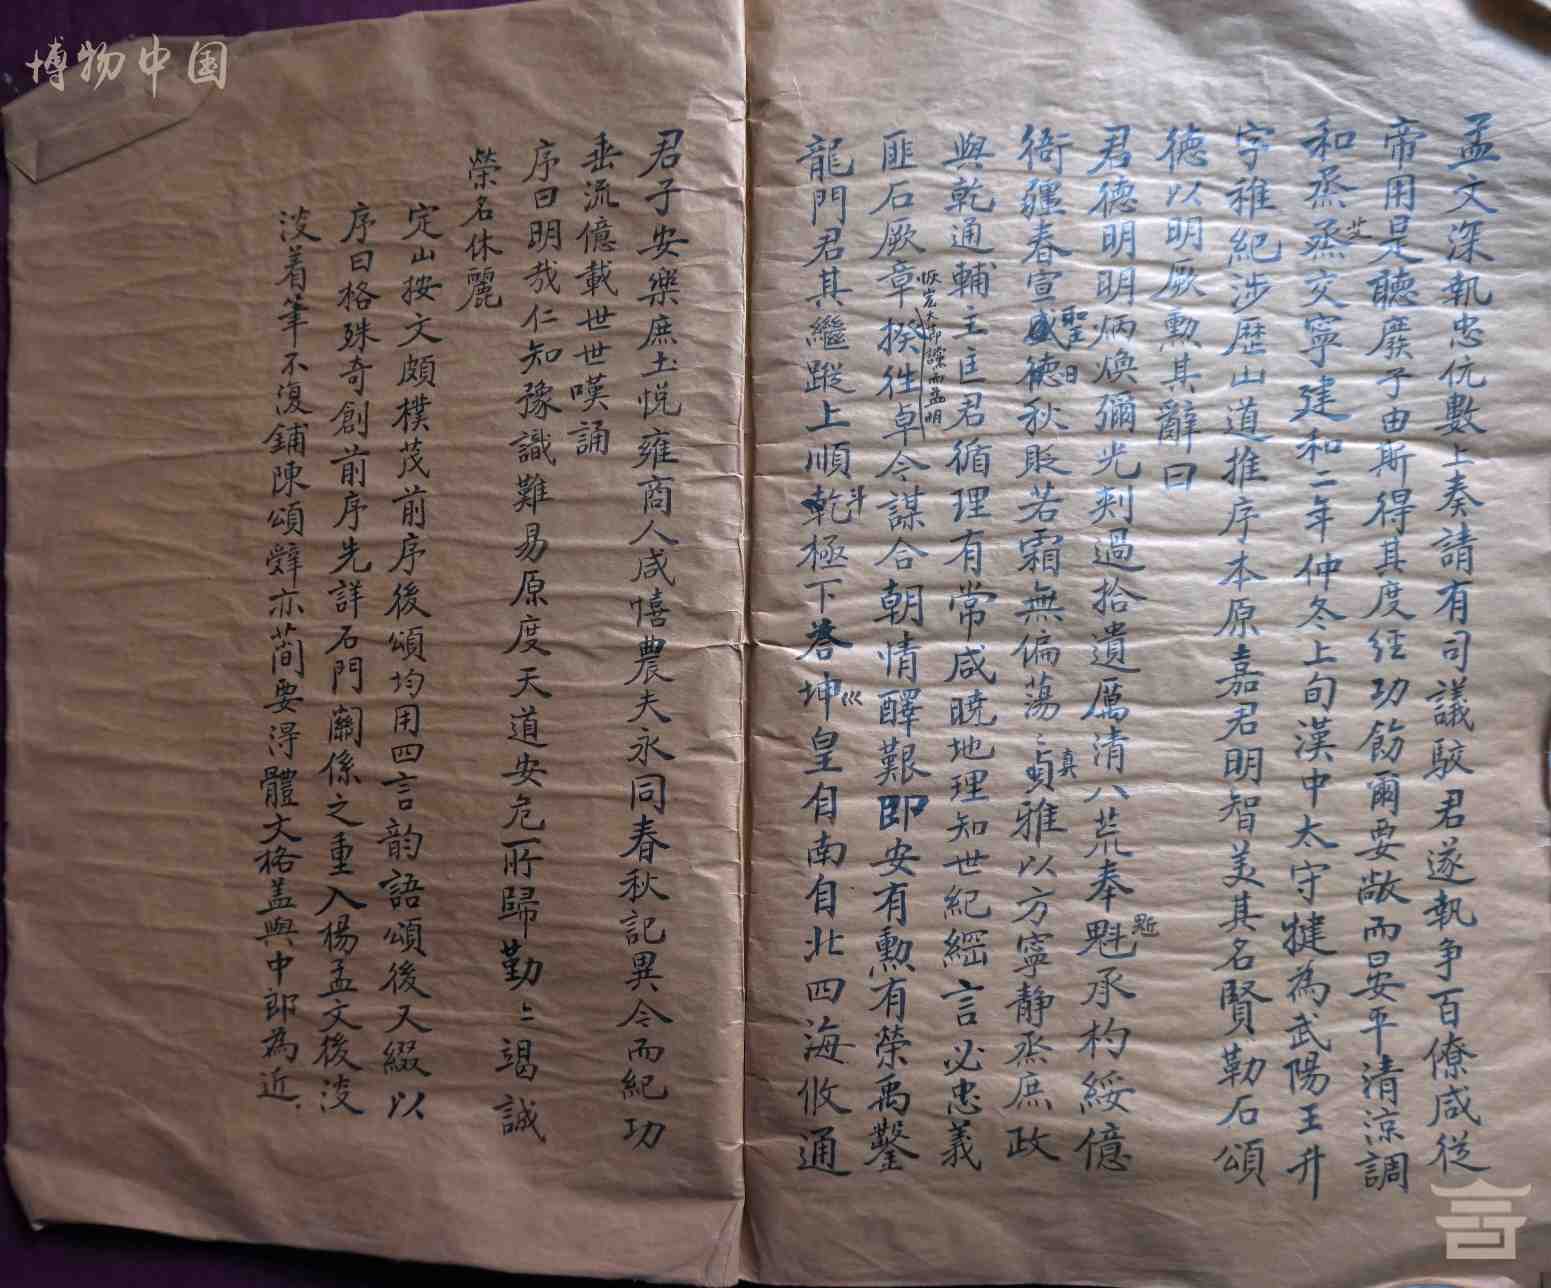 博物中国
孟文深執忠伉數上奏請有司議駮君遂執争百僚咸從
帝用是聽廢子由斯得其度經功飭爾要敞而晏平清涼調
和烝烝艾寧建和二年仲冬上旬漢中太守犍為武陽王升
字稚紀涉歷山道推序本原嘉君明智美其名賢勒石頌
德以明厥勳其辭曰
君德明明炳煥彌光刺過拾遺厲清八荒奉魁承杓綏億
衙疆春宣聖德秋貶若霜無偏蕩〻貞雅以方寧静烝庶政
與乾通輔主匡君循理有常咸曉地理知世紀綱言必忠義
匪石厥章恢宏大節讜而益明揆往卓今謀合朝情醳艱即安有勳有榮禹鑿
龍門君其繼蹤上順斗極下荅坤皇自南自北四海攸通
君子安樂庶士悦雍商人咸憘農夫永同春秋記異今而紀功
垂流億載世世嘆誦
序曰明哉仁知豫識難易原度天道安危所歸勤〻竭誠
榮名休麗
定山按文頗樸茂前序後頌均用四言韵語頌後又綴以
序曰格殊奇創前序先詳石門關係之重入楊孟文後没
没着筆不復鋪陳頌辭亦簡要得體文格盖與中郎為近